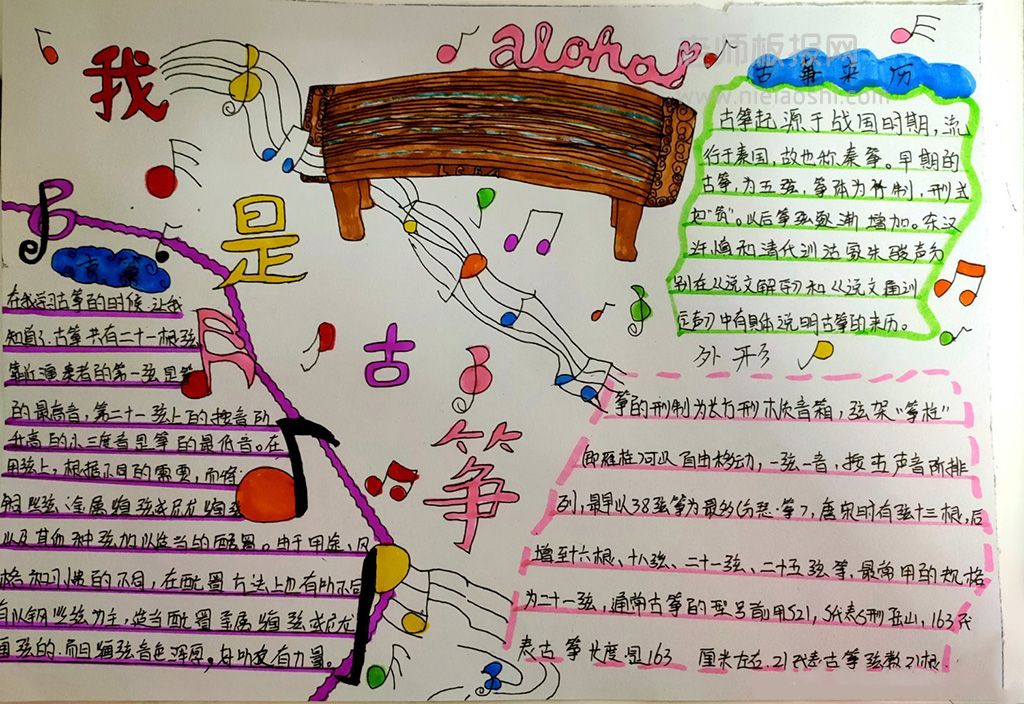 我
是
古
筝
aloha
老师板报网
www.nielaoshi.com
古筝来历
古筝起源于战国时期,流
行于秦国,故也称秦筝。早期的
古筝,为五弦,筝体为竹制,形式
如"筑"。以后筝弦逐渐增加。东汉
许慎和清代训诂家朱骏声分
别在《说文解字》和《说文通训
定声》中有具体说明古筝的来历。
外形
筝的形制为长方形木质音箱,弦架"筝柱"
(即雁柱)可以自由移动,一弦一音,按五声音阶排
列,最早以25弦筝为最多(分瑟筝),唐宋时有弦十三根,后
增至十六根、十八弦、二十一弦、二十五弦等,最常用的规格
为二十一弦,通常古筝的型号前用S21,S代表S形岳山,163代
表古筝长度是163厘米左右.21代表古筝弦数21根.
古筝
在我学习古筝的时候,让我
知道了,古筝共有二十一根弦
靠近演奏者的第一弦是筝
的最高音,第二十一弦上的按音所
升高的小三度音是筝的最低音。在
用弦上,根据不同的需要,而将
钢丝弦、金属缠弦或尼龙缠弦
以及其他种弦加以适当的配置。由于用途、风
格和习惯的不同,在配置方法上也有所不同
有以钢丝弦为主,适当配置金属缠弦或尼龙
缠弦的.而且缠弦音色浑厚,
有力量。